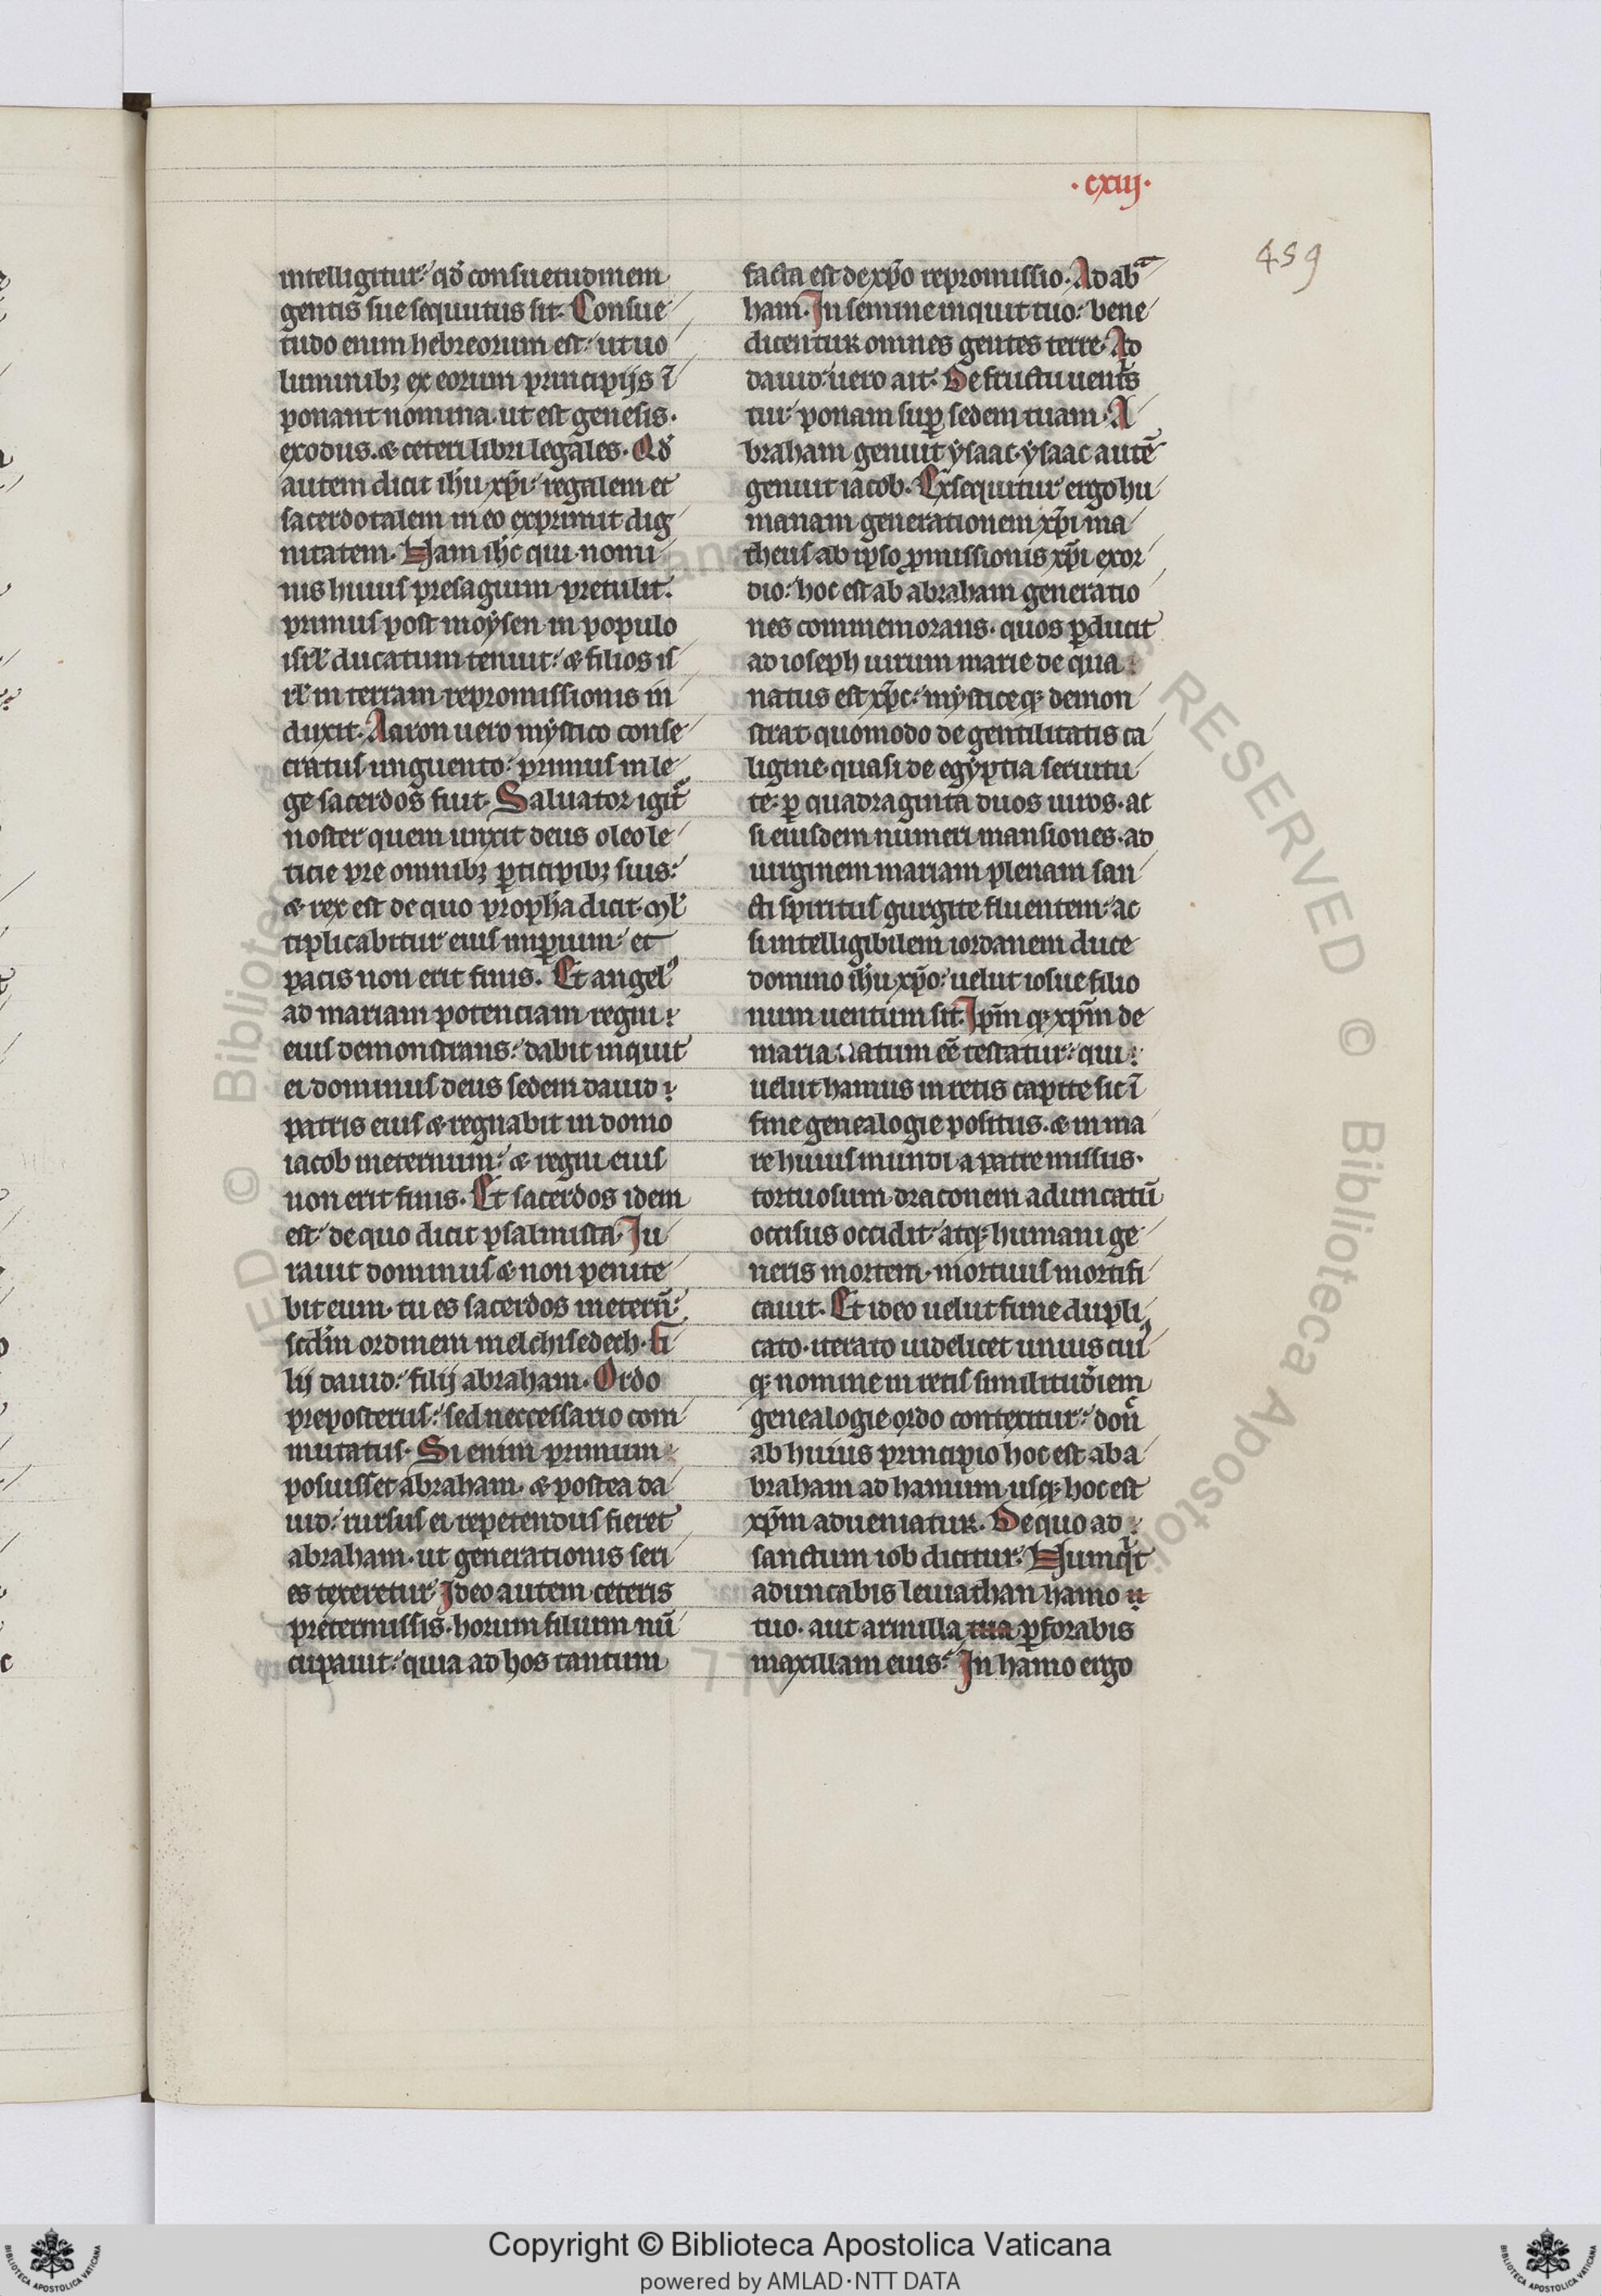 ·cxiij·
459
intelligitur: qđ consuetudinem
gentis sue sequutus sit. Consue
tudo enim hebreorum est: ut uo
luminibꝫ ex eorum principijs ī
ponant nomina. ut est genesis.
exodus. & ceteri libri legales. Qđ
autem dicit ih̄u xp̄i: regalem et
sacerdotalem in eo exprimit dig
nitatem. Nam ih̄c qui nomi
nis huius presagium pretulit.
primus post moẏsen in populo
isrl̄ ducatum tenuit: & filios is
rl̄ in terram repromissionis in
duxit. Aaron uero mẏstico conse
cratus unguento: primus in le
ge sacerdos fuit. Saluator igit᷑
noster quem unxit deus oleo le
ticie pre omnibꝫ ꝑticipibꝫ suis:
& rex est de quo proph̄a dicit. Ml̄
tiplicabitur eius imꝑium: et
pacis non erit finis. Et angelꝰ
ad mariam potenciam regni
eius demonstrans: dabit inquit
ei dominus deus sedem dauid
patris eius & regnabit in domo
iacob ineternum: & regni eius
non erit finis. Et sacerdos idem
est: de quo dicit psalmista. Iu
rauit dominus & non penite
bit eum. tu es sacerdos ineternū:
scdm̄ ordinem melchisedech. fi
lij dauid: filij abraham. Ordo
preposterus: sed neccessario com
mutatus. Si enim primum
posuisset abraham. & postea da
uid: rursus ei repetendus fieret
abraham. ut generationis seri
es texeretur. Ideo autem ceteris
pretermissis. horum filium nū
cupauit: quia ad hos tantum
facta est de xp̄o repromissio. Ad abᵃ
ham. In semine inquit tuo: bene
dicentur omnes gentes terre. Ad
dauid: uero ait. De fructu uent᷑s
tui: ponam suꝑ sedem tuam. A
braham genuit ẏsaac. ẏsaac autē
genuit iacob. Exsequitur ergo hu
manam generationem xp̄i ma
theus ab ipso ꝓmissionis xp̄i exor
dio: hoc est ab abraham generatio
nes commemorans. quos ꝑducit
ad ioseph uirum marie de qua
natus est xp̄c: mẏsticeqꝫ demon
strat quomodo de gentilitatis ca
ligine quasi de egẏptia seruitu
te: ꝑ quadraginta duos uiros. ac
si eiusdem numeri mansiones. ad
uirginem mariam plenam san
cti spiritus gurgite fluentem: ac
si intelligibilem iordanem duce
domino ih̄u xp̄o: uelut iosue filio
num uentum sit. Ipm̄ qꝫ xp̄m de
maria natum eē testatur: qui
uelut hamus in retis capite sic ī
fine genealogie positus. & in ma
re huius mundi a patre missus.
tortuosum draconem aduncatū
occisus occidit: atqꝫ humani ge
neris mortem. mortuus mortifi
cauit. Et ideo uelut fune dupli
cato. iterato uidelicet unius cuiꝰ
qꝫ nomine in retis similitudīem
genealogie ordo contexitur: don᷑
ab huius principio hoc est ab a
braham ad hamum usqꝫ hoc est
xp̄m adueniatur. De quo ad
sanctum iob dicitur: Numqͥt
aduncabis leuiathan hamo
tuo. aut armilla tua ꝑforabis
maxillam eius? In hamo ergo
Copyright © Biblioteca Apostolica Vaticana
powered by AMLAD·NTT DATA